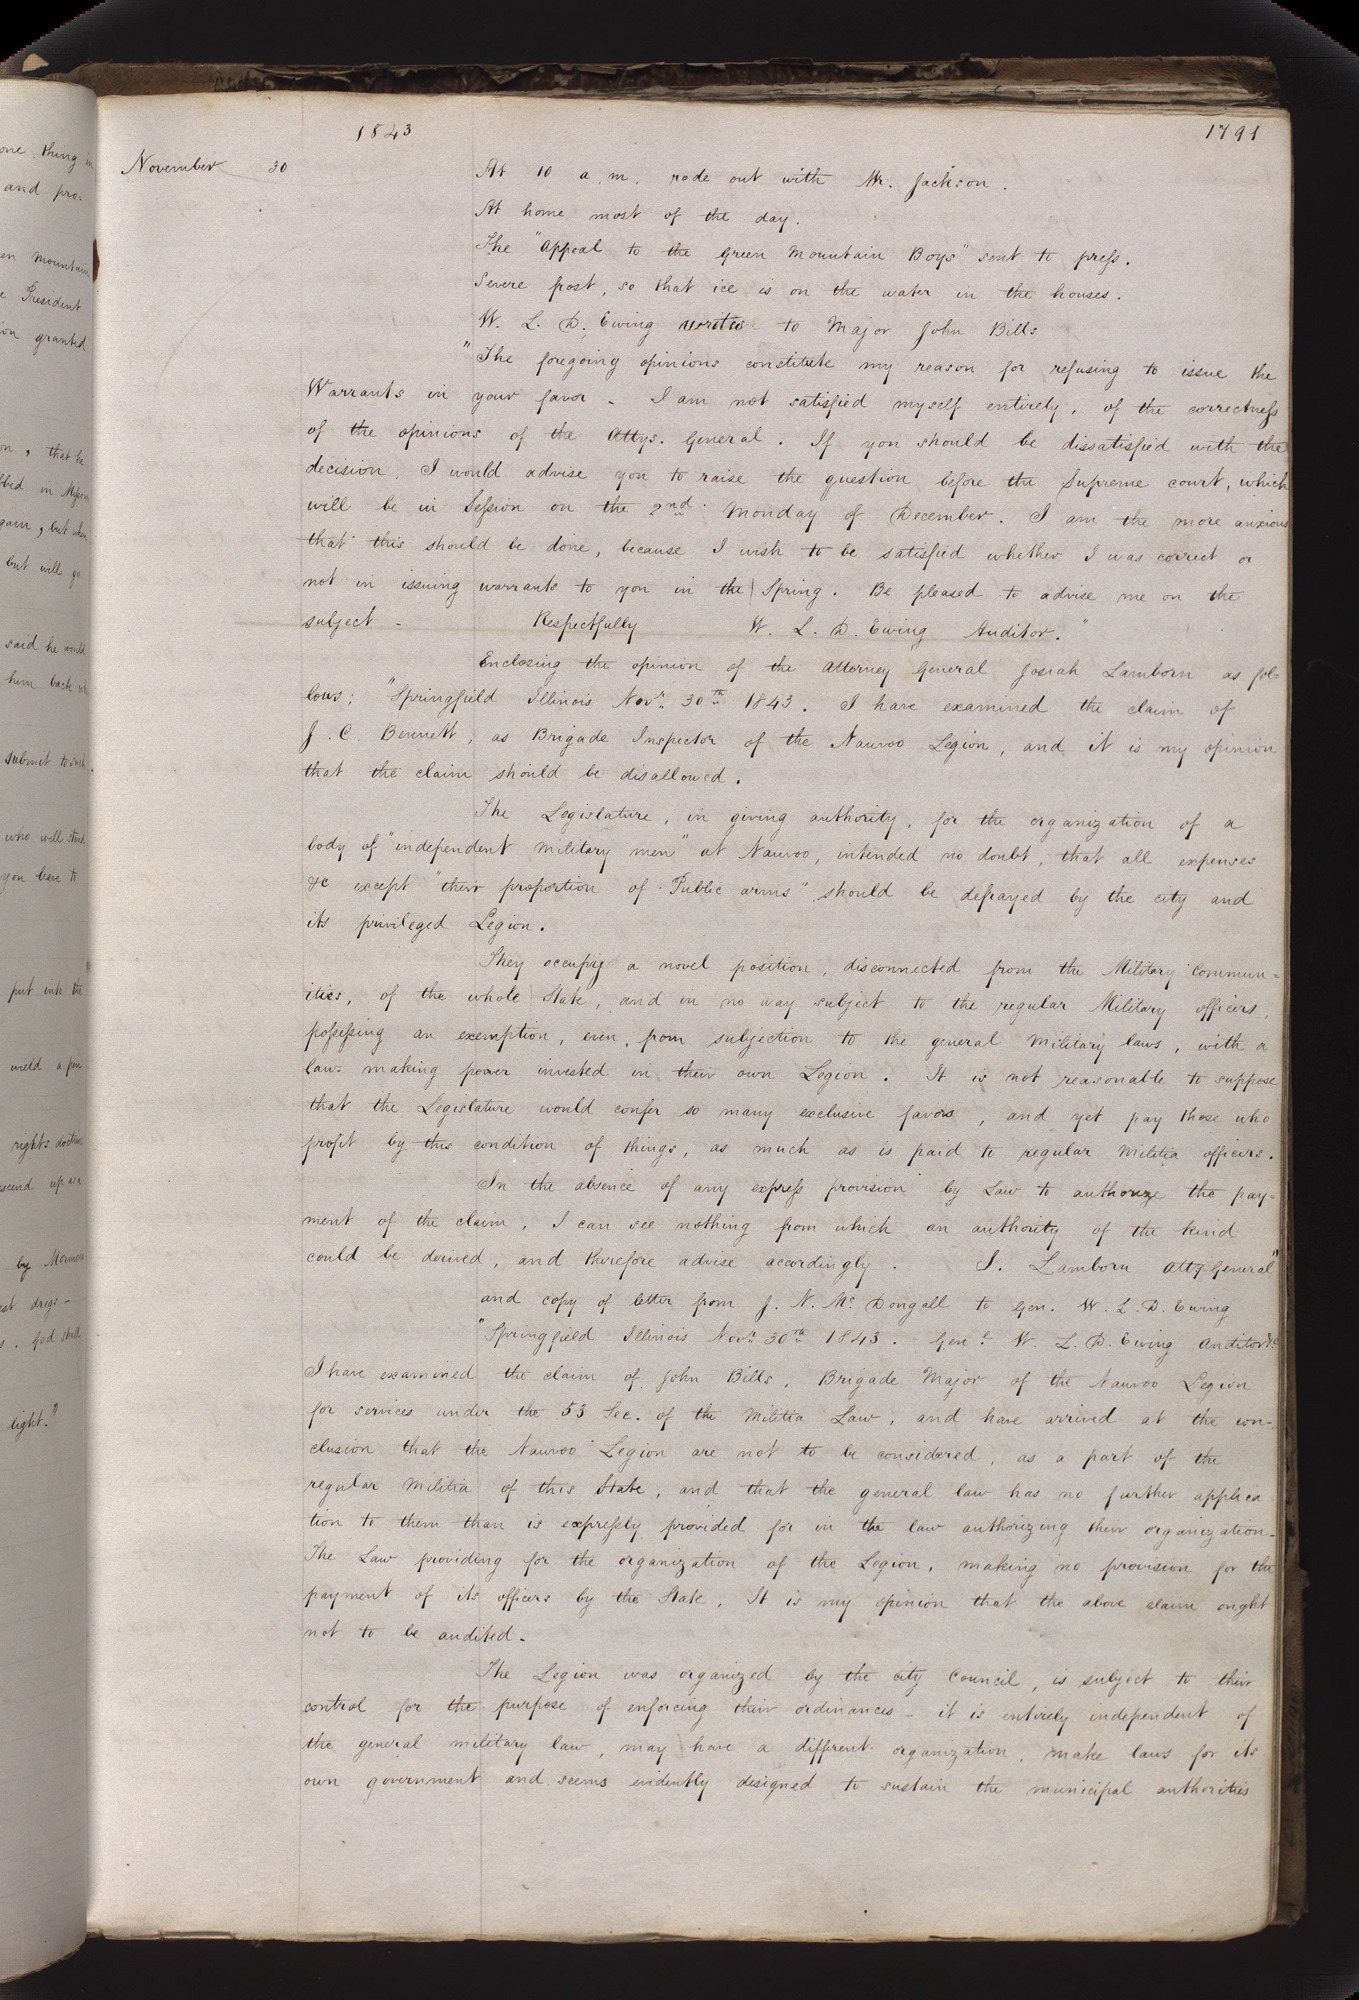 one thing in
and pro=
en Mountain
e President
ion granted
on, that he
gain, but when
but will go
said he would
him back
submit to such
who will stand
you leave to
put into the
wield a pen
rights doctrine
scend up as a
by Mormons
est dregs -
s. God shall
light."
1843 1791
November 30 At 10 a.m. rode out with Mr. Jackson.
At home most of the day.
The "Appeal to the Green Mountain Boys" sent to press.
Severe frost, so that ice is on the water in the houses.
W. L. D. Ewing writes to Major John Bills
"The foregoing opinions constitute my reason for refusing to issue the
Warrants in your favor - I am not satisfied myself entirely, of the correctness
of the opinions of the Attys. General. If you should be dissatisfied with the
decision, I would advise you to raise the question before the Supreme court, which
will be in Session on the 2nd. Monday of December. I am the more anxious
that this should be done, because I wish to be satisfied whether I was correct or
not in issuing warrants to you in the Spring. Be pleased to advise me on the
subject - Respectfully W. L. D. Ewing Auditor."
Enclosing the opinion of the Attorney General Josiah Lamborn as fol=
lows; "Springfield Illinois Novr. 30th 1843. I have examined the claim of
J. C. Bennett, as Brigade Inspector of the Nauvoo Legion, and it is my opinion
that the claim should be disallowed.
The Legislature, in giving authority, for the organization of a
body of "independent military men" at Nauvoo, intended no doubt, that all expenses
&c except "their proportion of Public arms" should be defrayed by the city and
its privileged Legion.
They occupy a novel position, disconnected from the Military Commun=
ities, of the whole State, and in no way subject to the regular Military officers,
possessing an exemption, even, from subjection to the general Military laws, with a
law-making power invested in their own Legion. It is not reasonable to suppose
that the Legislature would confer so many exclusive favors, and yet pay those who
profit by this condition of things, as much as is paid to regular Militia officers.
In the absence of any express provision by Law to authorize the pay=
ment of the claim, I can see nothing from which an authority of the kind
could be derived, and therefore advise accordingly. J. Lamborn Atty-General"
and copy of letter from J. N. Mc Dougall to Gen. W. L. D. Ewing
"Springfield Illinois Novr. 30th 1843. Genl. W. L. D. Ewing Auditor &c
I have examined the claim of John Bills, Brigade Major of the Nauvoo Legion
for services under the 53 Sec. of the Militia Law, and have arrived at the con-
clusion that the Nauvoo Legion are not to be considered, as a part of the
regular Militia of this State, and that the general law has no further applica
tion to them than is expressly provided for in the law authorizing their organization.
The Law providing for the organization of the Legion, making no provision for the
payment of its officers by the State, It is my opinion that the above claim ought
not to be audited.
The Legion was organized by the city Council, is subject to their
control for the purpose of enforcing their ordinances - it is entirely independent of
the general military law, may have a different organization, make laws for its
own government and seems evidently designed to sustain the municipal authorities